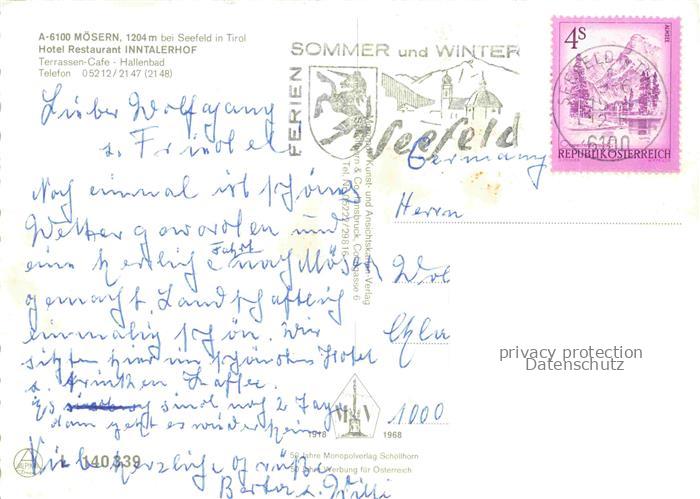 A-6100 MÖSERN, 1204 m bei Seefeld in Tirol
Hotel Restaurant INNTALERHOF
Terrassen-Cafe - Hallenbad
Telefon 05212/2147 (2148)
FERIEN
SOMMER und WINTER
Seefeld
SEEFELD
6100
4S
ALMSEE
REPUBLIK ÖSTERREICH
Lieber Wolfgang
u. Friedel
Noch einmal ist schönes
Wetter geworden und
eine herrliche Fahrt nach Mösern
gemacht. Landschaftlich
einmalig schön. Wir
sitzen hier im schönsten Hotel
u. trinken Kaffee.
Es sind noch 2 Tage
dann geht es wieder heim
Viele herzliche Grüße
Berta u. Willi
Kunst- und Ansichtskarten-Verlag
Germany
Herrn
1000
1918 1968
50 Jahre Monopolverlag Schöllhorn
50 Jahre Werbung für Österreich
L 140 339
privacy protection
Datenschutz